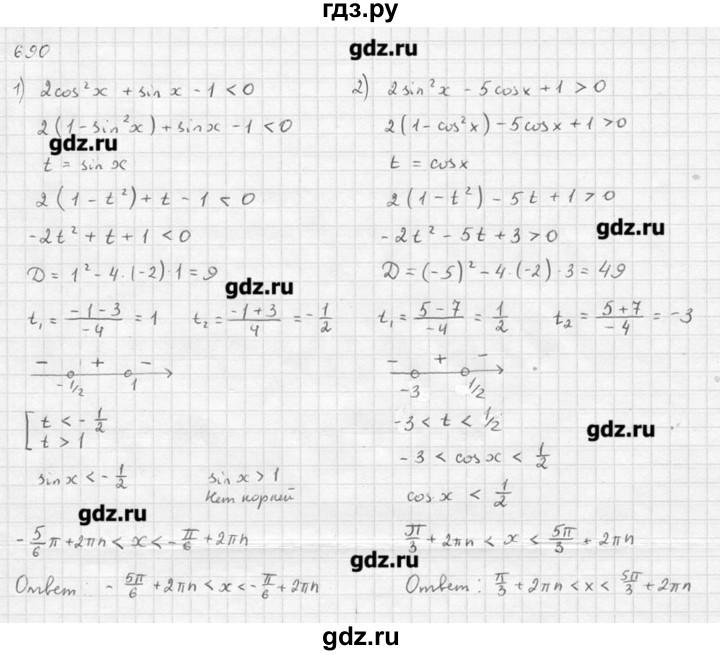 гдз.ру
690
gdz.ru
1) 2cos²x + sin x - 1 < 0
2(1 - sin²x) + sin x - 1 < 0
gdz.ru
t = sin x
2(1 - t²) + t - 1 < 0
-2t² + t + 1 < 0
D = 1² - 4·(-2)·1 = 9
gdz.ru
t₁ = (-1-3)/(-4) = 1 t₂ = (-1+3)/4 = -1/2
- + -
-1/2 1
[ t < -1/2
t > 1
sin x < -1/2 sin x > 1
Нет корней
gdz.ru
-5/6 π + 2πn < x < -π/6 + 2πn
Ответ: -5π/6 + 2πn < x < -π/6 + 2πn
2) 2sin²x - 5cosx + 1 > 0
2(1 - cos²x) - 5cosx + 1 > 0
t = cosx
2(1 - t²) - 5t + 1 > 0
gdz.ru
-2t² - 5t + 3 > 0
D = (-5)² - 4·(-2)·3 = 49
t₁ = (5-7)/(-4) = 1/2 t₂ = (5+7)/(-4) = -3
- + -
-3 1/2
-3 < t < 1/2
gdz.ru
-3 < cosx < 1/2
cosx < 1/2
π/3 + 2πn < x < 5π/3 + 2πn
gdz.ru
Ответ: π/3 + 2πn < x < 5π/3 + 2πn
gdz.ru